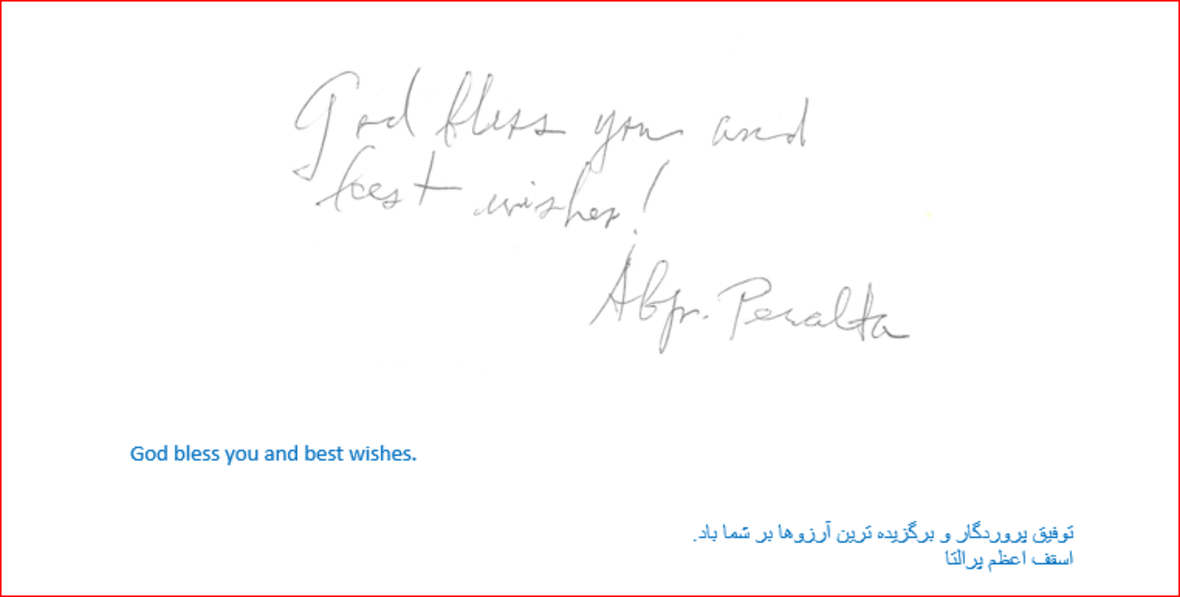 God bless you and
best wishes!
Abp. Peralta
God bless you and best wishes.
توفیق پروردگار و برگزیده ترین آرزوها بر شما باد.
اسقف اعظم پرالتا